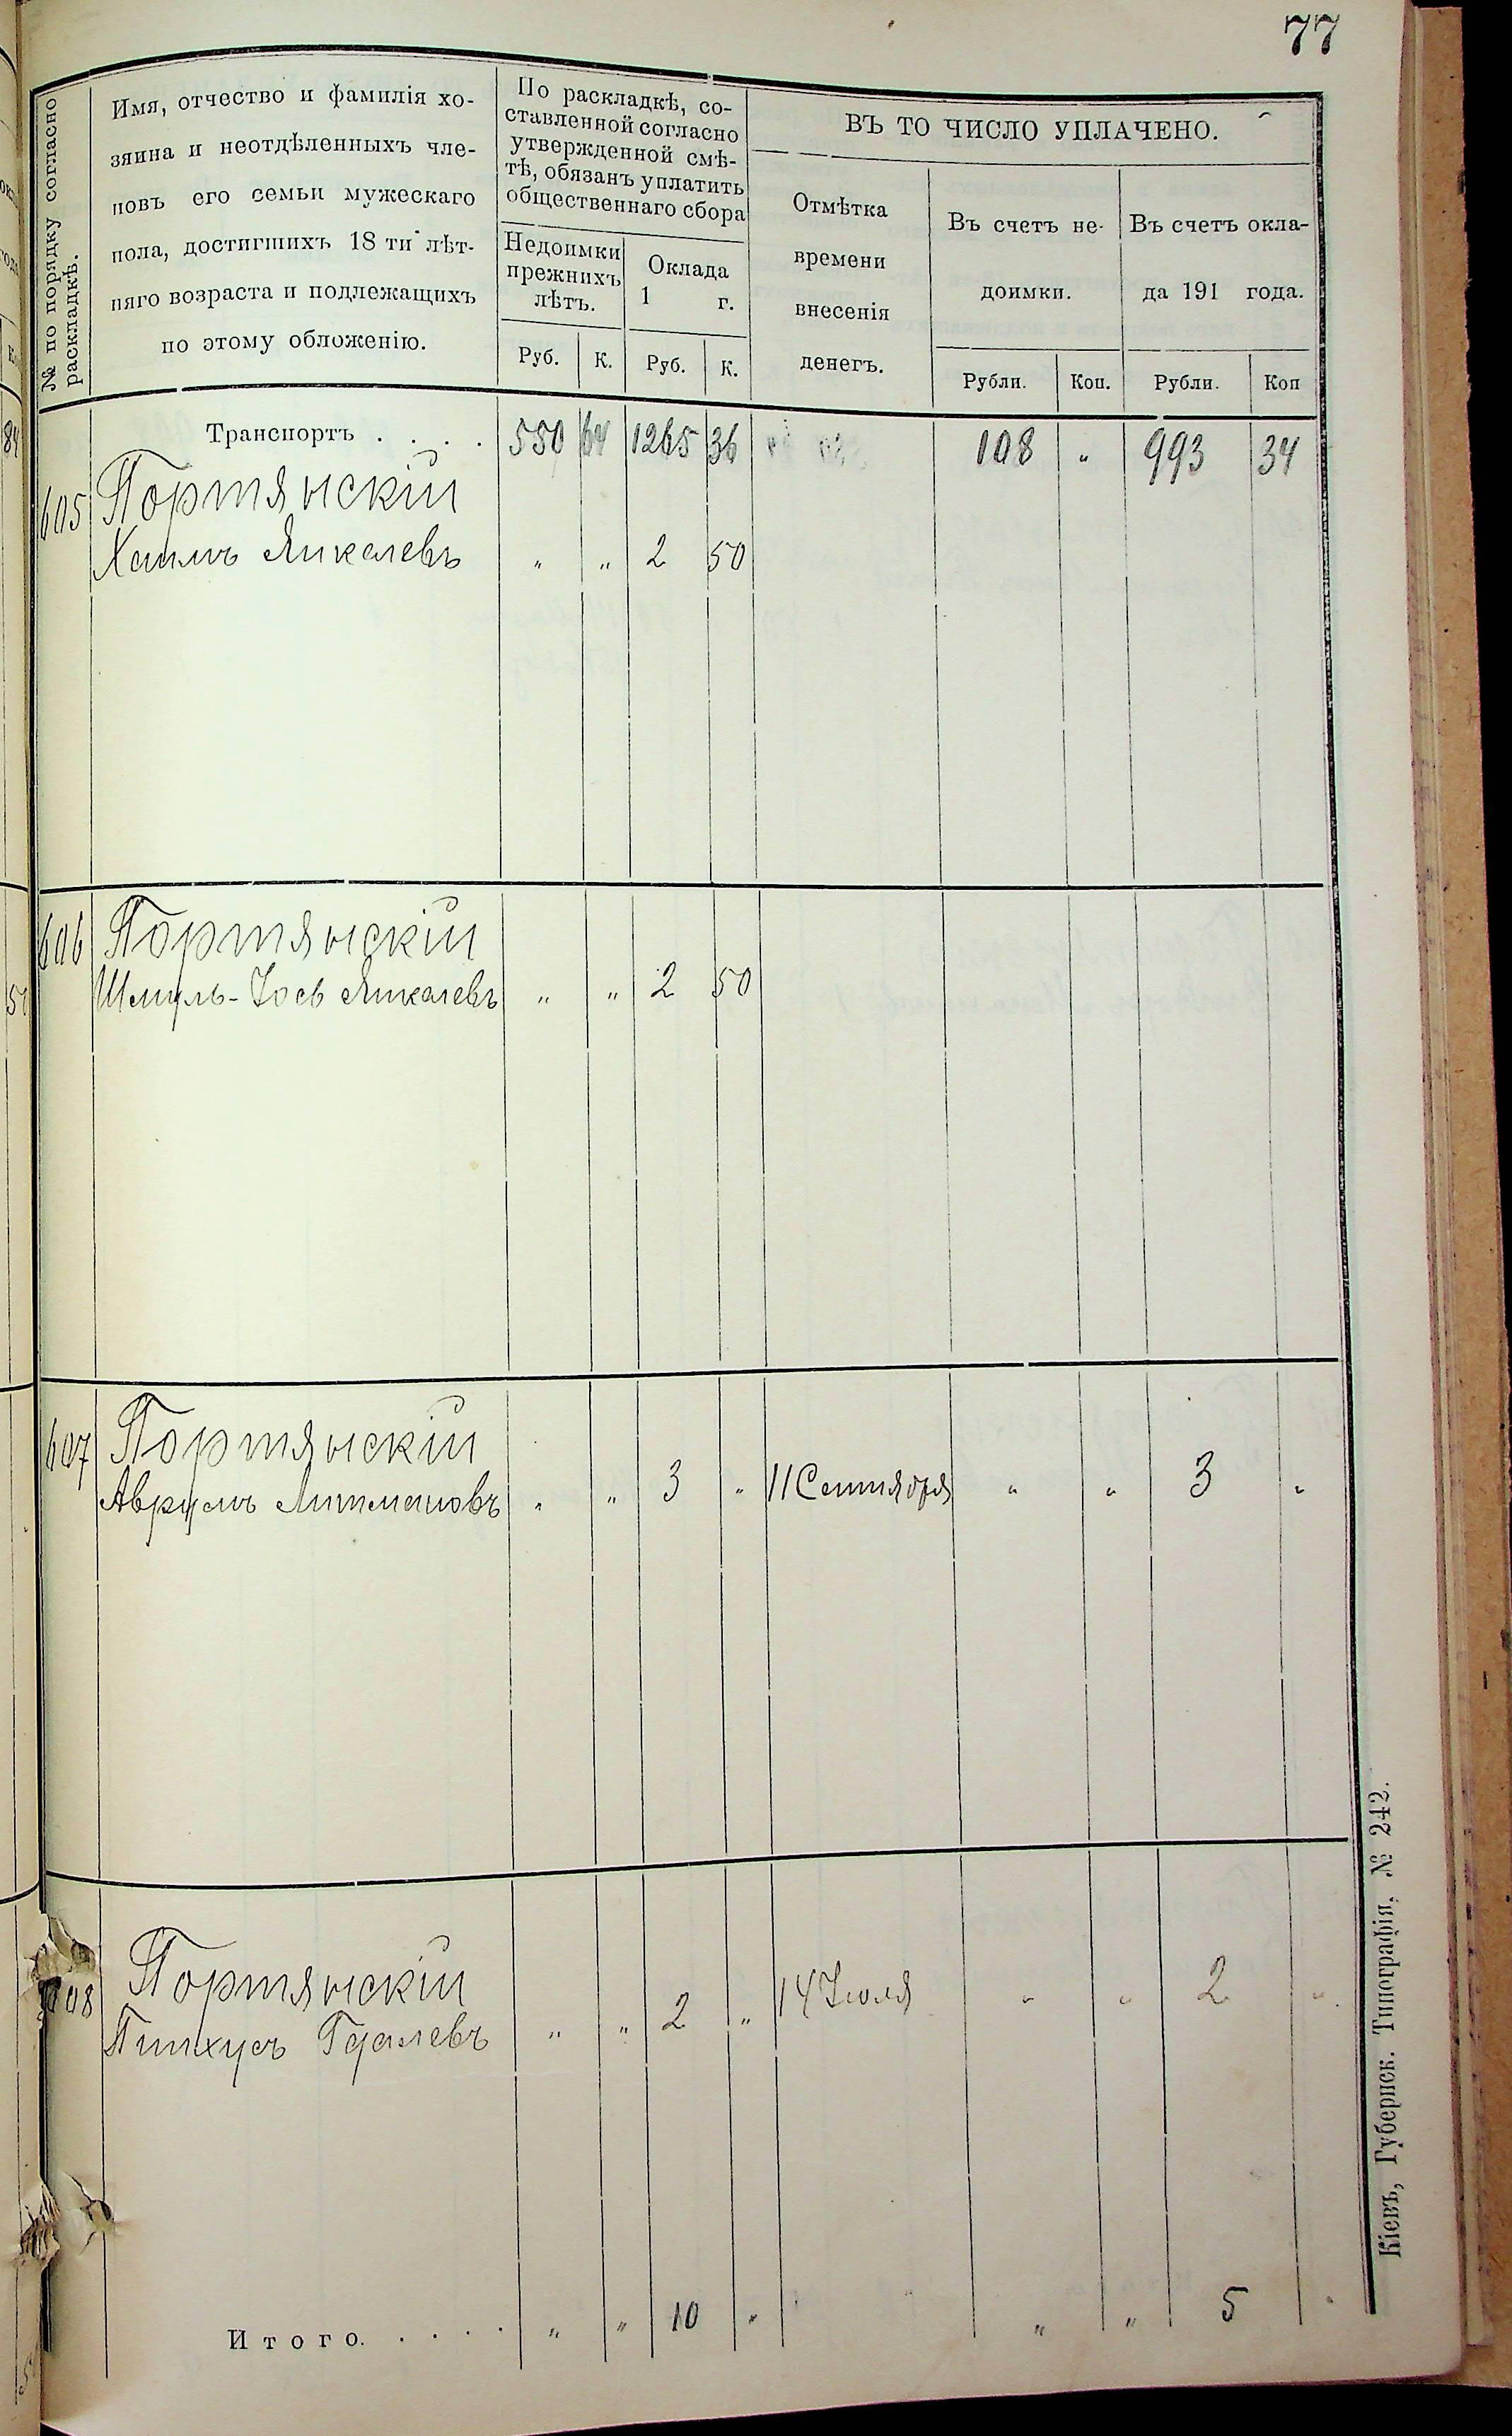 77
№ по порядку согласно
раскладкѣ.
Имя, отчество и фамилія хо-
зяина и неотдѣленныхъ чле-
новъ его семьи мужескаго
пола, достигшихъ 18 ти лѣт-
няго возраста и подлежащихъ
по этому обложенію.
По раскладкѣ, со-
ставленной согласно
утвержденной смѣ-
тѣ, обязанъ уплатить
общественнаго сбора
Недоимки
прежнихъ
лѣтъ.
Оклада
1 г.
Руб. К. Руб. К.
ВЪ ТО ЧИСЛО УПЛАЧЕНО.
Отмѣтка
времени
внесенія
денегъ.
Въ счетъ не-
доимки.
Въ счетъ окла-
да 191 года.
Рубли. Коп. Рубли. Коп
Транспортъ . . . . 550 64 1265 36 108 " 993 34
605 Портянскій
Хаимъ Янкелевъ " " 2 50
606 Портянскій
Шмуль-Іось Янкелевъ " " 2 50
607 Портянскій
Аврумъ Литмановъ " " 3 " 11 Сентября " " 3 "
608 Портянскій
Пинхусъ Гдалевъ " " 2 " 14 Іюля " " 2 "
Итого. . . . . " " 10 " " " 5 "
Кіевъ, Губернск. Типографія, № 242.